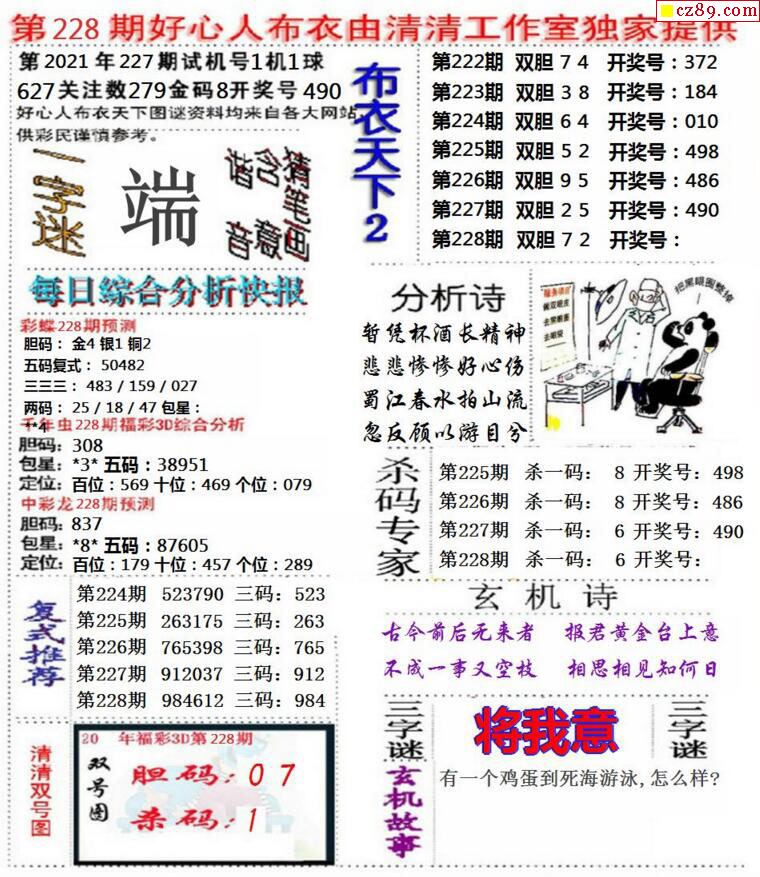 cz89.com
第228期好心人布衣由清清工作室独家提供
第2021年227期试机号1机1球
627关注数279金码8开奖号490
好心人布衣天下图谜资料均来自各大网站,
供彩民谨慎参考。
一字迷
端
谐音
含意
猜笔画
布衣天下2
第222期 双胆74 开奖号:372
第223期 双胆38 开奖号:184
第224期 双胆64 开奖号:010
第225期 双胆52 开奖号:498
第226期 双胆95 开奖号:486
第227期 双胆25 开奖号:490
第228期 双胆72 开奖号:
每日综合分析快报
彩蝶228期预测
胆码: 金4 银1 铜2
五码复式: 50482
三三三: 483 / 159 / 027
两码: 25 / 18 / 47 包星:
**4
千年虫228期福彩3D综合分析
胆码:308
包星:*3* 五码:38951
定位:百位:569 十位:469 个位:079
中彩龙228期预测
胆码:837
包星:*8* 五码:87605
定位:百位:179 十位:457 个位:289
分析诗
暂凭杯酒长精神
悲悲惨惨好心伤
蜀江春水拍山流
忽反顾以游目兮
把黑眼圈整掉
杀码专家
第225期 杀一码: 8 开奖号:498
第226期 杀一码: 8 开奖号:486
第227期 杀一码: 6 开奖号:490
第228期 杀一码: 6 开奖号:
复式推荐
第224期 523790 三码:523
第225期 263175 三码:263
第226期 765398 三码:765
第227期 912037 三码:912
第228期 984612 三码:984
玄机诗
古今前后无来者 报君黄金台上意
不成一事又空枝 相思相见知何日
清清双号图
20 年福彩3D第228期
双号图
胆码:07
杀码:1
三字谜
将我意
三字谜
玄机故事
有一个鸡蛋到死海游泳,怎么样?